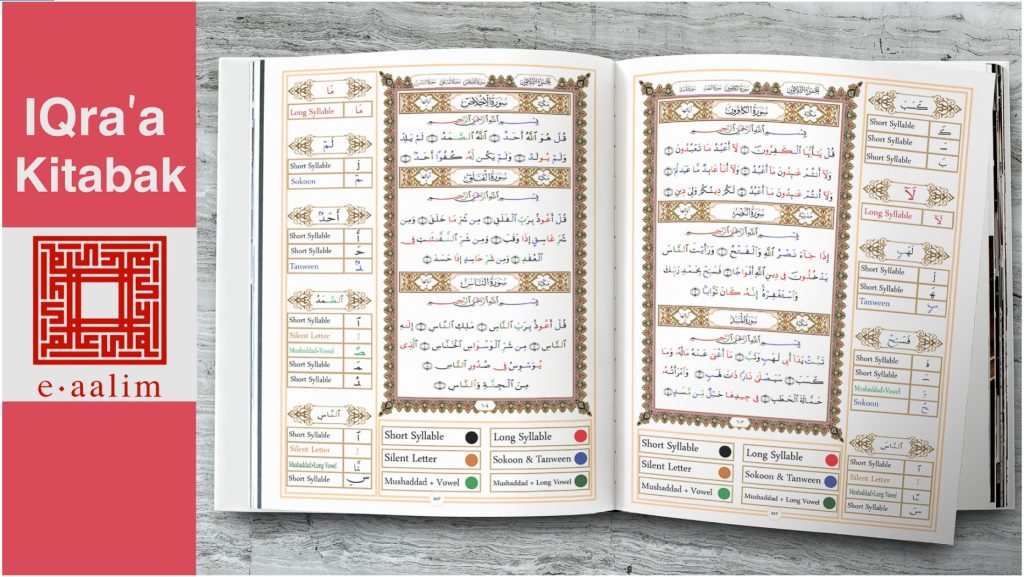 IQra'a
Kitabak
e·aalim
مَا
Long Syllable مَا
لَمْ
Short Syllable لَ
Sokoon مْ
أَحَدٌ
Short Syllable أَ
Short Syllable حَ
Tanween دٌ
الصَّمَدُ
Short Syllable
Silent Letter
Mushaddad+Vowel
Short Syllable
Short Syllable
النَّاسِ
Short Syllable
Silent Letter
Mushaddad+Long Vowel نَّا
Short Syllable سِ
مكية سُورَةُ الْإِخْلَاصِ آياتها
بِسْمِ اللَّهِ الرَّحْمَٰنِ الرَّحِيمِ
قُلْ هُوَ اللَّهُ أَحَدٌ ۝١ اللَّهُ الصَّمَدُ ۝٢ لَمْ يَلِدْ
وَلَمْ يُولَدْ ۝٣ وَلَمْ يَكُن لَّهُ كُفُوًا أَحَدٌ ۝٤
مكية سُورَةُ الْفَلَقِ آياتها
بِسْمِ اللَّهِ الرَّحْمَٰنِ الرَّحِيمِ
قُلْ أَعُوذُ بِرَبِّ الْفَلَقِ ۝١ مِن شَرِّ مَا خَلَقَ ۝٢ وَمِن
شَرِّ غَاسِقٍ إِذَا وَقَبَ ۝٣ وَمِن شَرِّ النَّفَّٰثَٰتِ فِي
الْعُقَدِ ۝٤ وَمِن شَرِّ حَاسِدٍ إِذَا حَسَدَ ۝٥
مكية سُورَةُ النَّاسِ آياتها
بِسْمِ اللَّهِ الرَّحْمَٰنِ الرَّحِيمِ
قُلْ أَعُوذُ بِرَبِّ النَّاسِ ۝١ مَلِكِ النَّاسِ ۝٢ إِلَٰهِ
النَّاسِ ۝٣ مِن شَرِّ الْوَسْوَاسِ الْخَنَّاسِ ۝٤ الَّذِي
يُوَسْوِسُ فِي صُدُورِ النَّاسِ ۝٥
مِنَ الْجِنَّةِ وَالنَّاسِ ۝٦
٦٠٤
Short Syllable Long Syllable
Silent Letter Sokoon & Tanween
Mushaddad + Vowel Mushaddad + Long Vowel
مكية سُورَةُ الْكَافِرُونَ آياتها
بِسْمِ اللَّهِ الرَّحْمَٰنِ الرَّحِيمِ
قُلْ يَٰٓأَيُّهَا الْكَٰفِرُونَ ۝١ لَآ أَعْبُدُ مَا تَعْبُدُونَ ۝٢
وَلَآ أَنتُمْ عَٰبِدُونَ مَآ أَعْبُدُ ۝٣ وَلَآ أَنَا۠ عَابِدٌ مَّا عَبَدتُّمْ ۝٤
وَلَآ أَنتُمْ عَٰبِدُونَ مَآ أَعْبُدُ ۝٥ لَكُمْ دِينُكُمْ وَلِيَ دِينِ ۝٦
مدنية سُورَةُ النَّصْرِ آياتها
بِسْمِ اللَّهِ الرَّحْمَٰنِ الرَّحِيمِ
إِذَا جَآءَ نَصْرُ اللَّهِ وَالْفَتْحُ ۝١ وَرَأَيْتَ النَّاسَ
يَدْخُلُونَ فِي دِينِ اللَّهِ أَفْوَاجًا ۝٢ فَسَبِّحْ بِحَمْدِ رَبِّكَ
وَاسْتَغْفِرْهُ إِنَّهُ كَانَ تَوَّابًا ۝٣
مكية سُورَةُ الْمَسَدِ آياتها
بِسْمِ اللَّهِ الرَّحْمَٰنِ الرَّحِيمِ
تَبَّتْ يَدَآ أَبِي لَهَبٍ وَتَبَّ ۝١ مَآ أَغْنَىٰ عَنْهُ مَالُهُ وَمَا
كَسَبَ ۝٢ سَيَصْلَىٰ نَارًا ذَاتَ لَهَبٍ ۝٣ وَامْرَأَتُهُ
حَمَّالَةَ الْحَطَبِ ۝٤ فِي جِيدِهَا حَبْلٌ مِّن مَّسَدٍ ۝٥
٦٠٣
Short Syllable Long Syllable
Silent Letter Sokoon & Tanween
Mushaddad + Vowel Mushaddad + Long Vowel
كَسَبَ
Short Syllable كَ
Short Syllable سَ
Short Syllable بَ
لَآ
Long Syllable لَآ
لَهَبٍ
Short Syllable لَ
Short Syllable هَ
Tanween بٍ
فَسَبِّحْ
Short Syllable
Short Syllable
Mushaddad+Vowel
Sokoon حْ
النَّاسَ
Short Syllable
Silent Letter
Mushaddad+Long Vowel نَّا
Short Syllable سَ